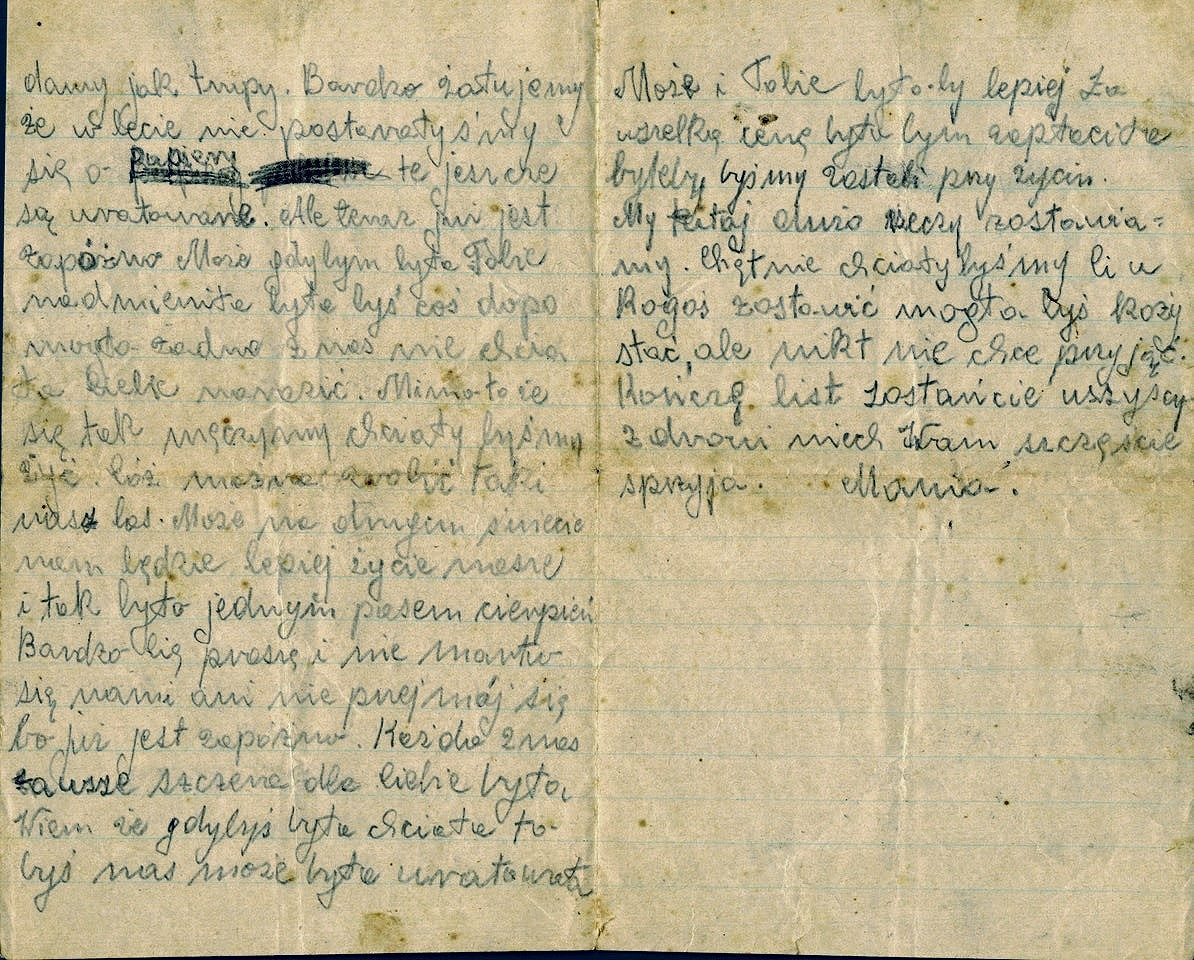 damy jak trupy. Bardzo żałujemy
że w lecie nie postarałyśmy
się o papiery te jeszcze
są uratowane. Ale teraz już jest
zapóźno Może gdybym była Tobie
nadmieniła była byś coś dopo
mogła żadna z nas nie chcia
ła Ciebie narazić. Mimo to że
się tak męczymy chciały byśmy
żyć. Cóż można zrobić taki
nasz los. Może na drugim świecie
nam będzie lepiej życie nasze
i tak było jednym pasem cierpień
Bardzo Cię proszę i nie martw
się nami ani nie przejmój się
bo już jest zapóźno. Każda z nas
zawsze szczera dla Ciebie była,
Wiem że gdybyś była chciała to-
byś nas może była uratowała
Może i Tobie było-by lepiej Za
wszelką cenę była bym zapłaciła
byleby, byśmy zostali przy życiu.
My tutaj dużo rzeczy zostawia=
my. Chętnie chciały byśmy Ci u
Kogoś zostawić mogła byś korzy
stać, ale nikt nie chce przyjąć.
Kończę list zostańcie wszyscy
zdrowi niech Wam szczęście
sprzyja. Mania.